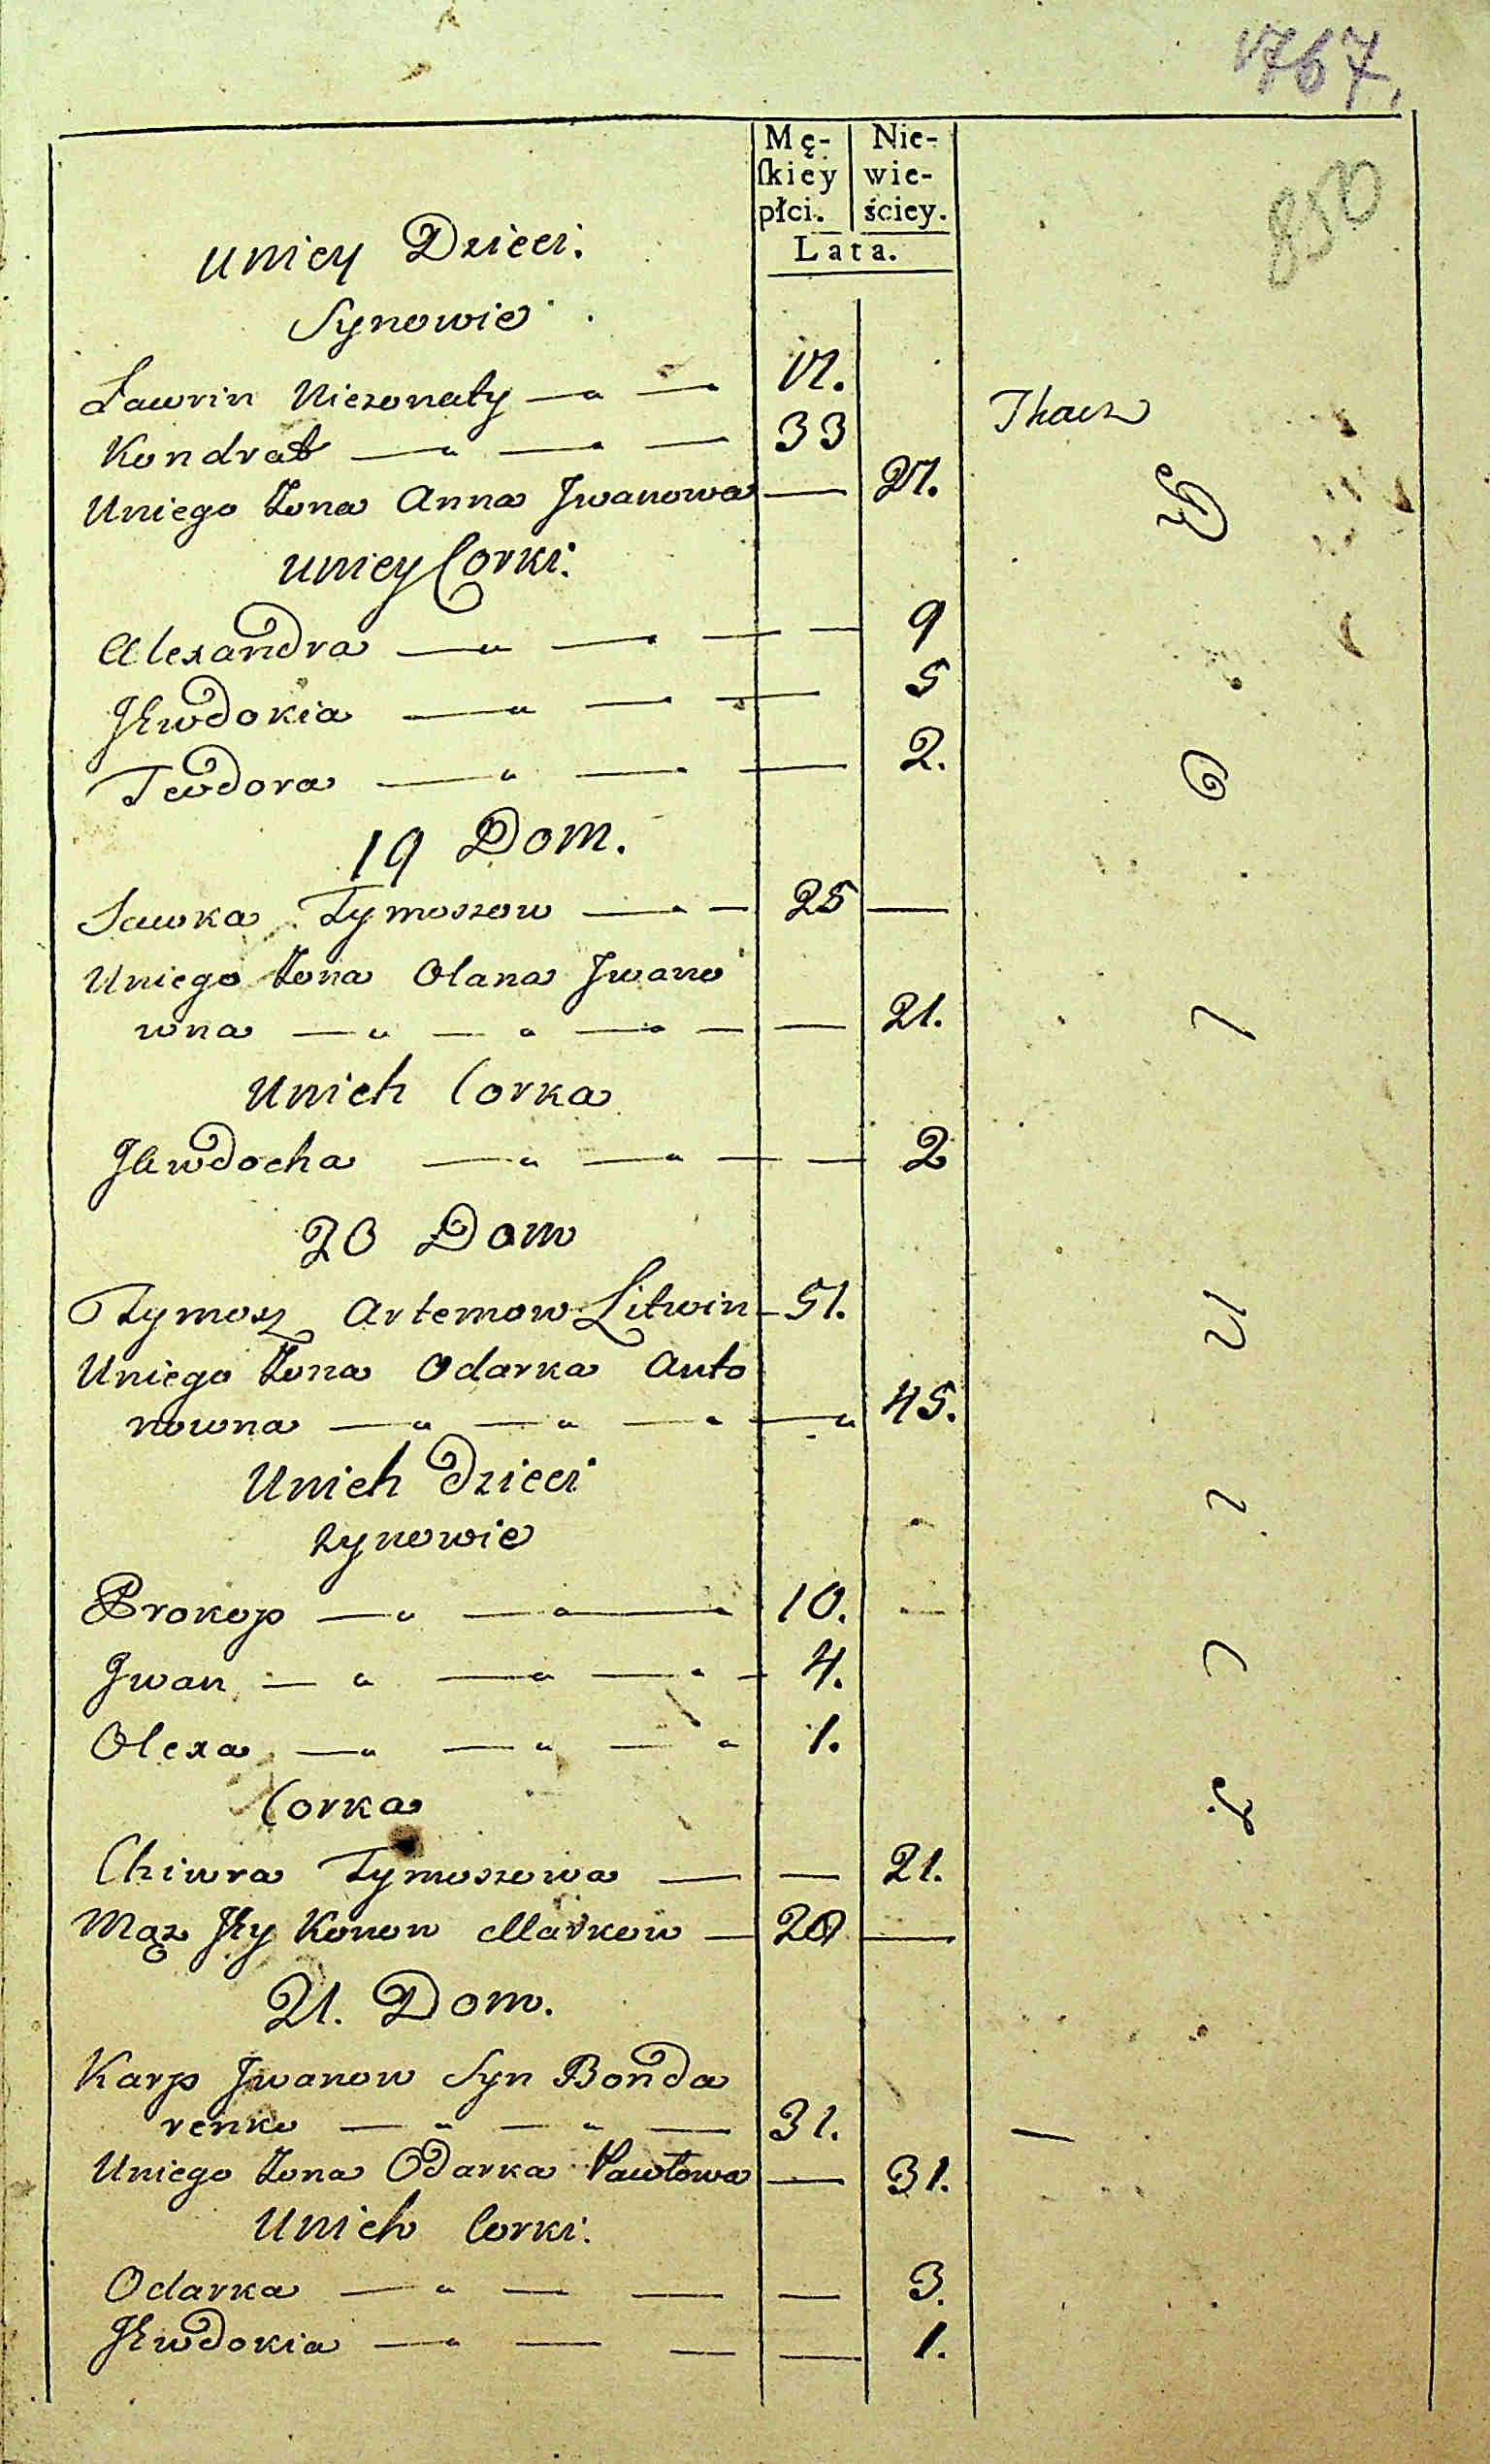 1767.
850
Mę-
ſkiey
płci.
Nie-
wie-
ściey.
Lata.
Uniey Dzieci.
Synowie
Ławrin Niezonaty
Kondrat 33 Tkacz
Uniego Zona Anna Jwanowa
Uniey Corki.
Alexandra 9
Jewdokia 5
Tewdora 2.
19 Dom.
Sawka Tymoszow 25
Uniego Zona Olana Jwano
wna 21.
Unich Corka
Jewdocha 2
20 Dom
Tymosz Artemow Litwin 51.
Uniego Zona Odarka Anto
nowna 45.
Unich Dzieci
Zynowie
Prokop 10.
Jwan 4.
Olexa 1.
Corka
Chiwra Tymoszowa 21.
Mąz Jey Konon Markow
21. Dom.
Karp Jwanow Syn Bonda
renko 31.
Uniego Zona Odarka Pawłowa 31.
Unich Corki.
Odarka 3.
Jewdokia 1.